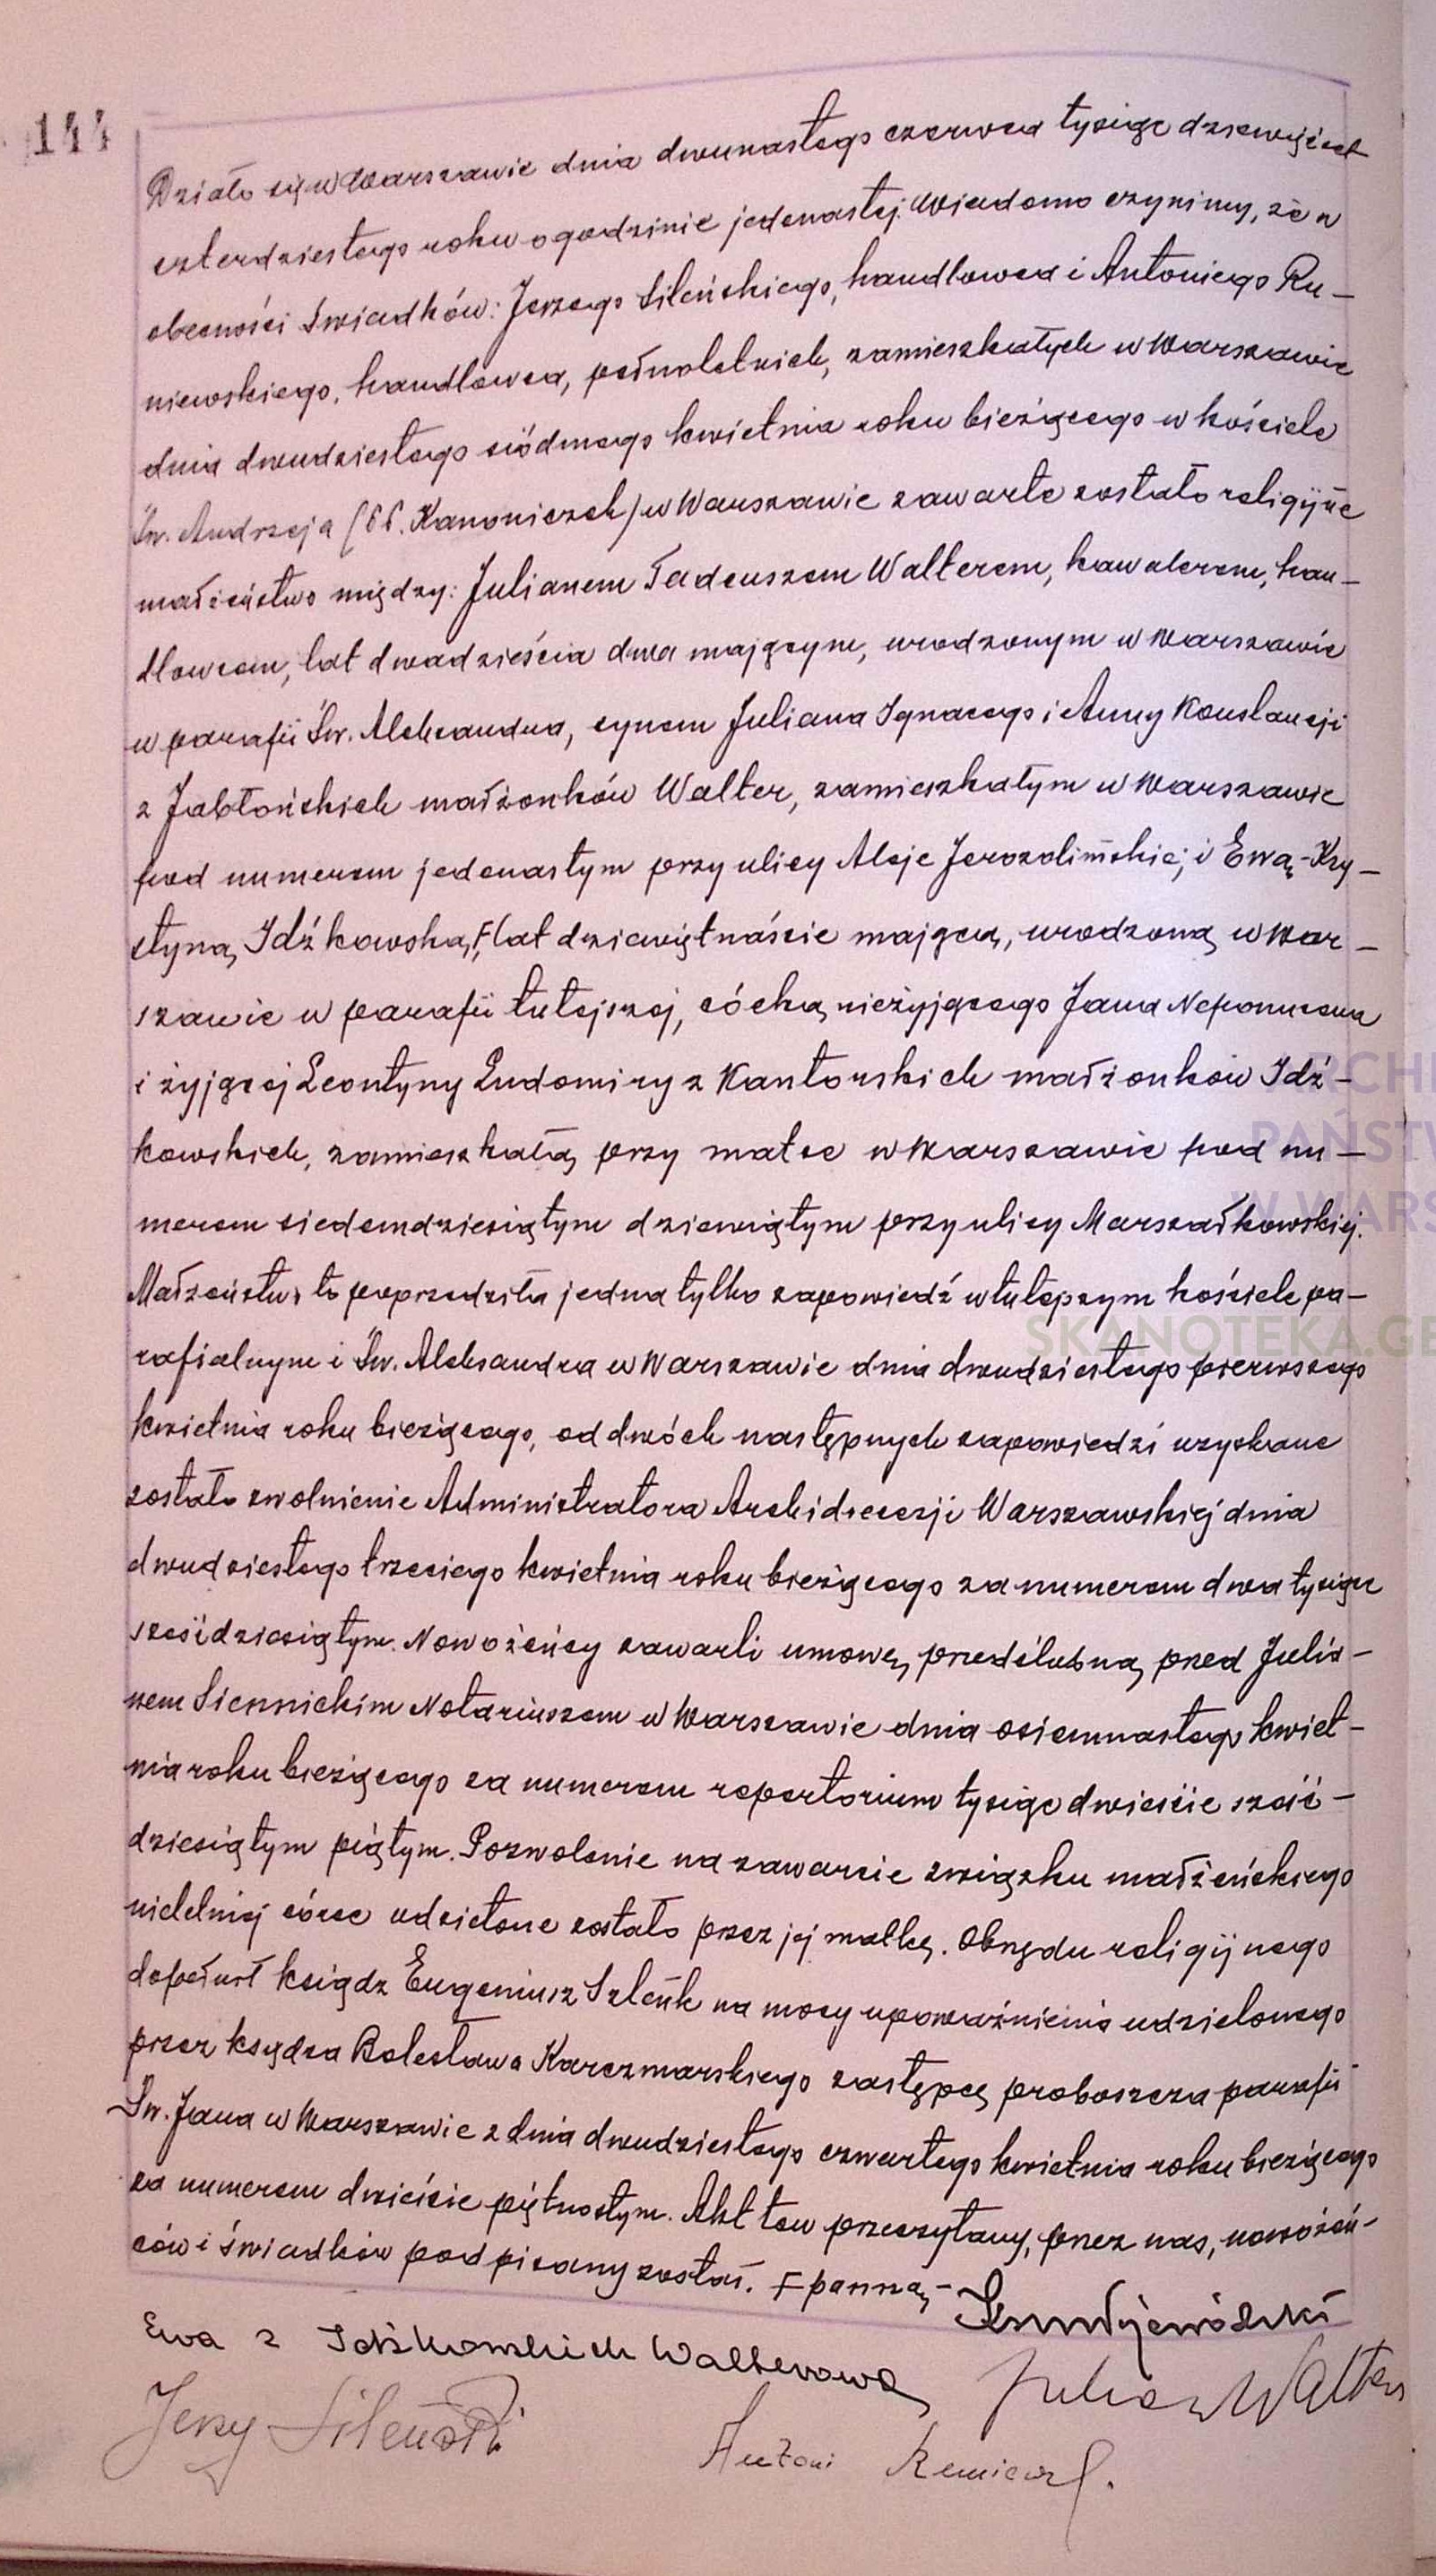 144
Działo się w Warszawie dnia dwunastego czerwca tysiąc dziewięćset
czterdziestego roku o godzinie jedenastej. Wiadomo czynimy, że w
obecności świadków: Jerzego Sileńskiego, handlowca i Antoniego Ru-
niewskiego, handlowca, pełnoletnich, zamieszkałych w Warszawie
dnia dwudziestego siódmego kwietnia roku bieżącego w kościele
Św. Andrzeja (PP. Kanoniczek) w Warszawie zawarte zostało religijne
małżeństwo między: Julianem Tadeuszem Walterem, kawalerem, han-
dlowcem, lat dwadzieścia dwa mającym, urodzonym w Warszawie
w parafii Św. Aleksandra, synem Juliana Ignacego i Anny Konstancji
z Jabłońskich małżonków Walter, zamieszkałym w Warszawie
pod numerem jedenastym przy ulicy Aleje Jerozolimskie; i Ewą-Kry-
styną Idźkowską, F lat dziewiętnaście mającą, urodzoną w War-
szawie w parafii tutejszej, córką nieżyjącego Jana Nepomucena
i żyjącej Leontyny Ludomiry z Kantorskich małżonków Idź-
kowskich, zamieszkałą przy matce w Warszawie pod nu-
merem siedemdziesiątym dziewiątym przy ulicy Marszałkowskiej.
Małżeństwo to poprzedziła jedna tylko zapowiedź w tutejszym kościele pa-
rafialnym i Św. Aleksandra w Warszawie dnia dwudziestego pierwszego
kwietnia roku bieżącego, od dwóch następnych zapowiedzi uzyskane
zostało zwolnienie Administratora Archidiecezji Warszawskiej dnia
dwudziestego trzeciego kwietnia roku bieżącego za numerem dwa tysiące
sześćdziesiątym. Nowożeńcy zawarli umowę przedślubną przed Julia-
nem Siennickim Notariuszem w Warszawie dnia osiemnastego kwiet-
nia roku bieżącego za numerem repertorium tysiąc dwieście sześć-
dziesiątym piątym. Pozwolenie na zawarcie związku małżeńskiego
nieletniej córce udzielone zostało przez jej matkę. Obrzędu religijnego
dopełnił ksiądz Eugeniusz Szlenk na mocy upoważnienia udzielonego
przez księdza Bolesława Karczmarskiego zastępcę proboszcza parafii
Św. Jana w Warszawie z dnia dwudziestego czwartego kwietnia roku bieżącego
za numerem dwieście piętnastym. Akt ten przeczytany, przez nas, nowożeń-
ców i świadków podpisany został. F panną-
Ewa z Idźkowskich Walterowa
Julian Walter
Jerzy Sileński
Antoni
ARCHI
PAŃSTW
W WARS
SKANOTEKA.GE